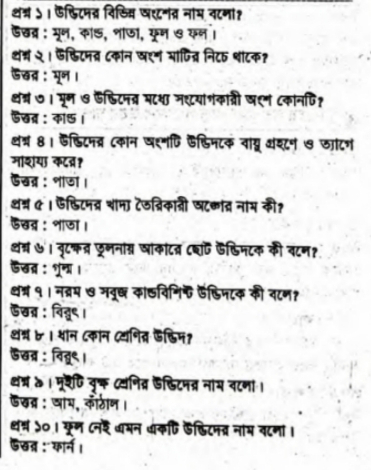 প্রশ্ন ১। উদ্ভিদের বিভিন্ন অংশের নাম বলো?
উত্তর : মূল, কান্ড, পাতা, ফুল ও ফল।
প্রশ্ন ২। উদ্ভিদের কোন অংশ মাটির নিচে থাকে?
উত্তর : মূল।
প্রশ্ন ৩। মূল ও উদ্ভিদের মধ্যে সংযোগকারী অংশ কোনটি?
উত্তর : কান্ড।
প্রশ্ন ৪। উদ্ভিদের কোন অংশটি উদ্ভিদকে বায়ু গ্রহণে ও ত্যাগে
সাহায্য করে?
উত্তর : পাতা।
প্রশ্ন ৫। উদ্ভিদের খাদ্য তৈরিকারী অঙ্গের নাম কী?
উত্তর : পাতা।
প্রশ্ন ৬। বৃক্ষের তুলনায় আকারে ছোট উদ্ভিদকে কী বলে?
উত্তর : গুল্ম।
প্রশ্ন ৭। নরম ও সবুজ কান্ডবিশিষ্ট উদ্ভিদকে কী বলে?
উত্তর : বিরুৎ।
প্রশ্ন ৮। ধান কোন শ্রেণির উদ্ভিদ?
উত্তর : বিরুৎ।
প্রশ্ন ৯। দুইটি বৃক্ষ শ্রেণির উদ্ভিদের নাম বলো।
উত্তর : আম, কাঁঠাল।
প্রশ্ন ১০। ফুল নেই এমন একটি উদ্ভিদের নাম বলো।
উত্তর : ফার্ন।